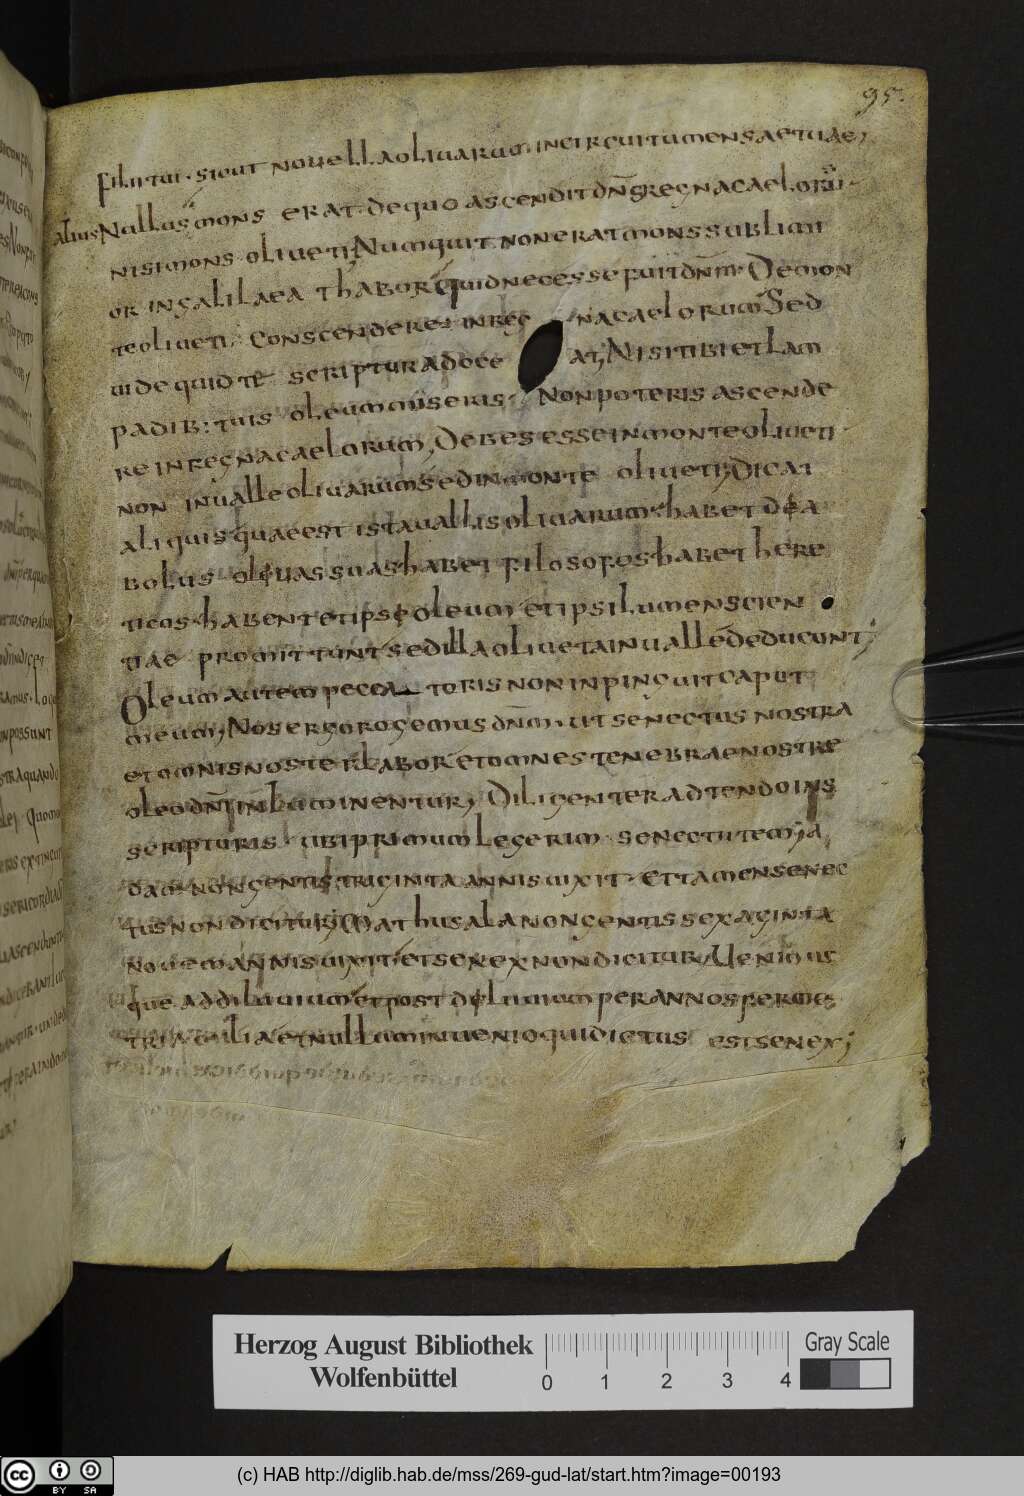 95.
filii tui· sicut nouella oliuarum in circuitu mensae tuae;
alius Nullus mons erat· de quo ascendit dn̄s regna caeloru·
nisi mons· oliueti; Numquit non erat mons sublimi
or in galilaea thabor· quid necesse fuit dn̄m· De mon
te oliueti· conscendere· in reg na caelorum; Sed
uide quid te scriptura doce at; Nisi tibi et lam
padib: tuis oleum miseris· Non poteris ascende
re in regna caelorum, Debes esse in monte oliueti·
non in ualle oliuarum· sed in monte oliueti; Dicat
aliquis quae est ista uallis oliuarum· habet dia
bolus oliuas suas habet filosofos habet here
ticos· habent et ipsi oleum et ipsi lumen scien
tiae promittunt· sed illa oliueta in ualle deducunt;
Oleum autem pecca toris non inpinguit caput
meum; Nos ergo rogemus dn̄m· ut senectus nostra
et omnis noster labor et omnes tenebrae nostre
oleo dn̄i inluminentur; Diligenter adtendo in s
scripturis ubi primum legerim· senectutem; a
dam nongentis triginta annis uixit· et tamen senec
tus non dicitur; Mathusala nongentis sexaginta
nouem annis uixit· et senex non dicitur; Uenimus
que ad diluuium et post diluuium per annos ferme
tria milia et nullum inuenio qui dictus est senex;
Herzog August Bibliothek
Wolfenbüttel
0 1 2 3 4
Gray Scale
cc BY SA
(c) HAB http://diglib.hab.de/mss/269-gud-lat/start.htm?image=00193